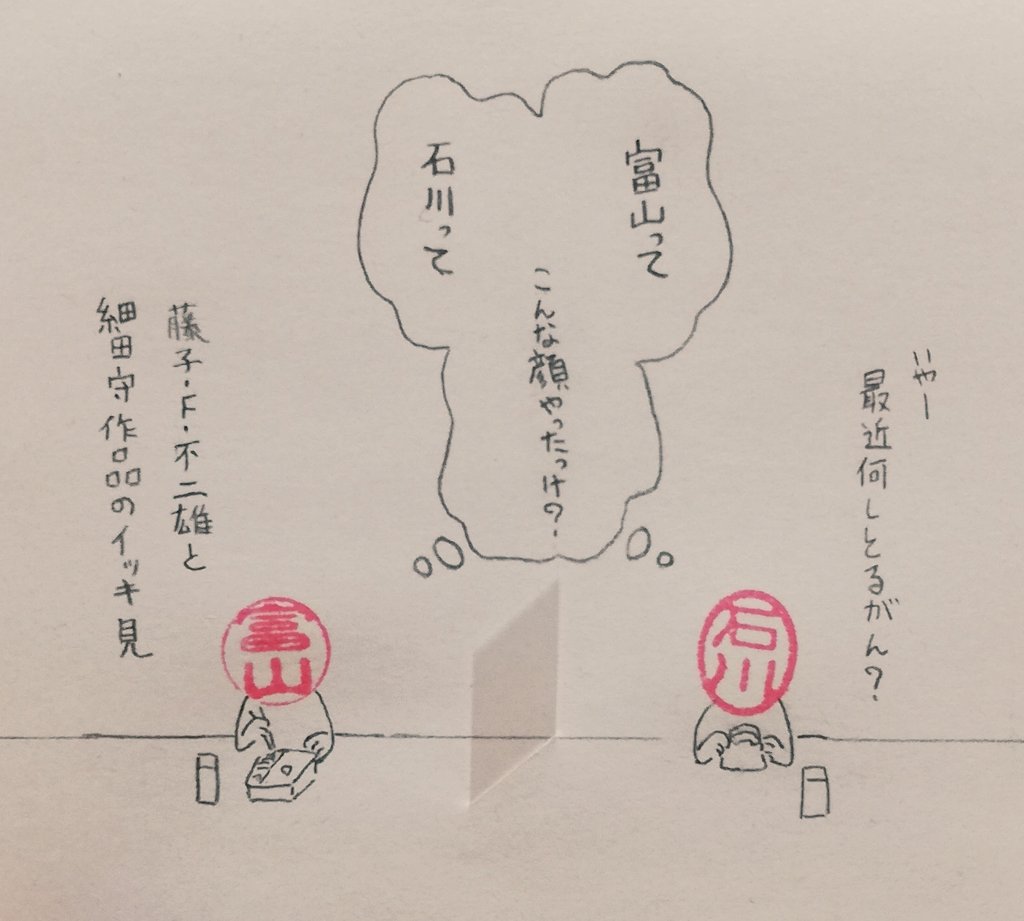 いやー
最近何しとるがん?
富山って
石川って
こんな顔やったっけ?
藤子・F・不二雄と
細田守作品のイッキ見
富山
石川